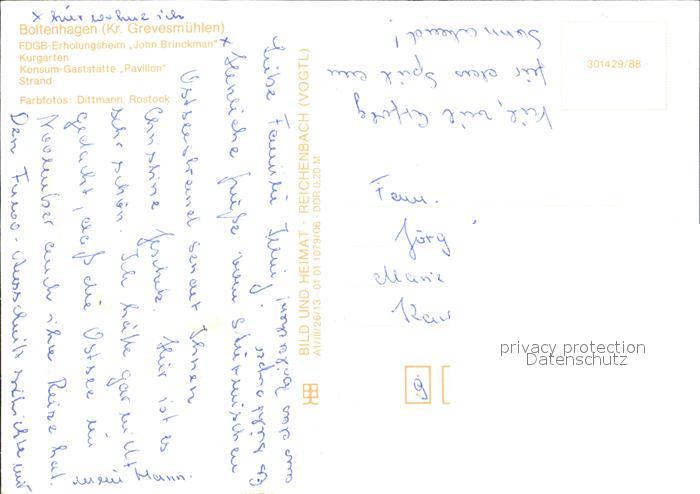 x hier wohne ich
Boltenhagen (Kr. Grevesmühlen)
FDGB-Erholungsheim „John Brinckman" x
Kurgarten
Konsum-Gaststätte „Pavillon"
Strand
Farbfotos: Dittmann, Rostock
Liebe Familie
Herzliche Grüße vom stürmischen
Ostseestrand sendet Ihnen
Christine Hier ist es
sehr schön. Ich hätte gar nicht
gedacht, daß die Ostsee im
November auch ihre Reize hat.
Den Funos-Ausschnitt schickte mir
mein Mann.
BILD UND HEIMAT · REICHENBACH (VOGTL)
A1/III/26/13 01 01 1079/06 · DDR 0,20 M
viel Erfolg
für das Spiel am
Sonnabend!
301429/88
Fam.
Jörg
9
privacy protection
Datenschutz